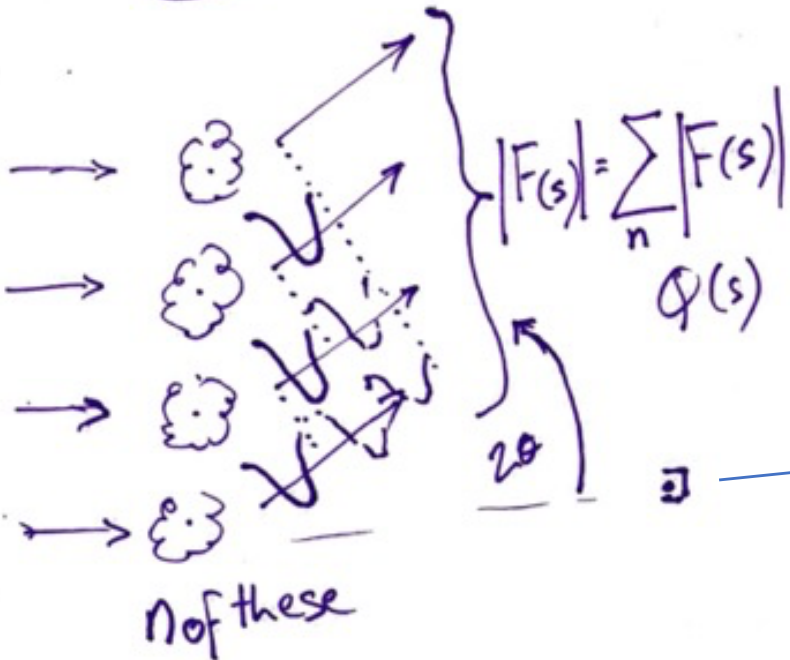 |F(s)| = ∑ |F(s)|
n
φ(s)
2θ
n of these